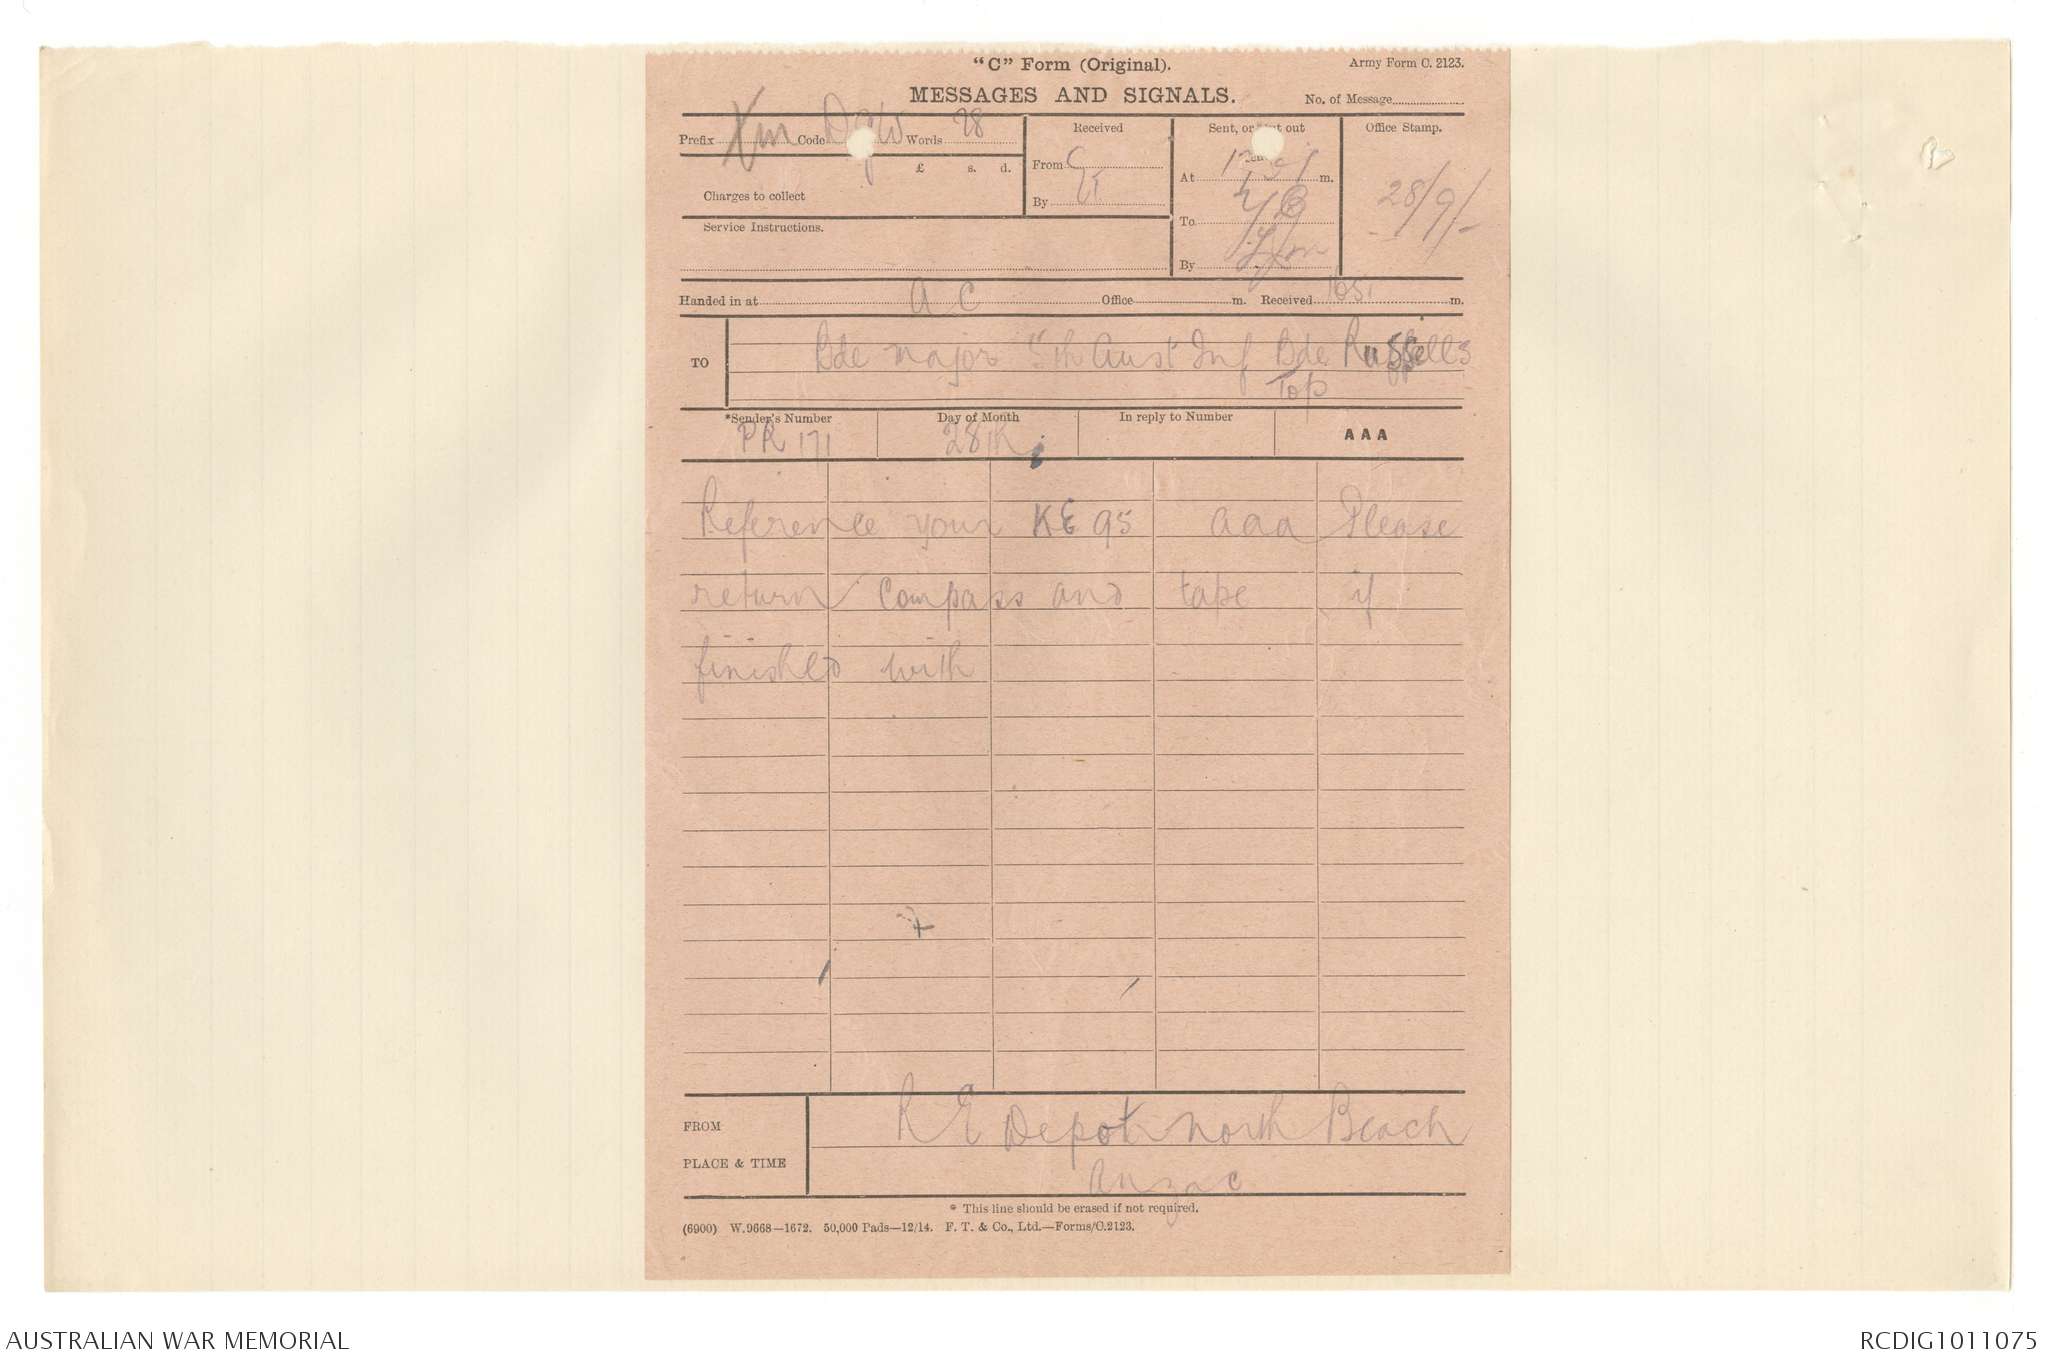 "C" Form (Original). Army Form C. 2123.
MESSAGES AND SIGNALS. No. of Message
Prefix Code Words 28
Received
From
By
Sent, or sent out
At m.
To
By
Office Stamp.
28/9/-
£ s. d.
Charges to collect
Service Instructions.
Handed in at A C Office m. Received 1051 m.
TO Bde major 5th Aust Inf Bde Russells
Top
*Sender's Number Day of Month In reply to Number
PR 171 28th AAA
Reference your KE 95 aaa Please
return compass and tape if
finished with
FROM R E Depot north Beach
PLACE & TIME Anzac
* This line should be erased if not required.
(6900) W.9668—1672. 50,000 Pads—12/14. F. T. & Co., Ltd.—Forms/C.2123.
AUSTRALIAN WAR MEMORIAL RCDIG1011075